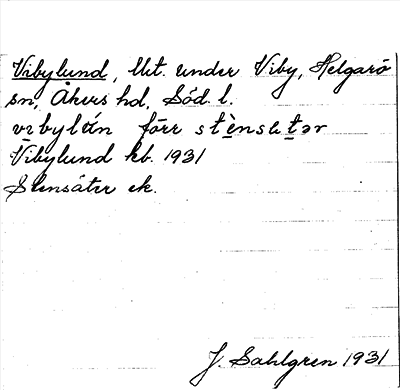 Vibylund, lht. under Viby, Helgarö
sn, Åkers hd, Söd. l.
vɪbylún förr stènsɩtər
Vibylund kb. 1931
Stensäter ek.
J. Sahlgren 1931